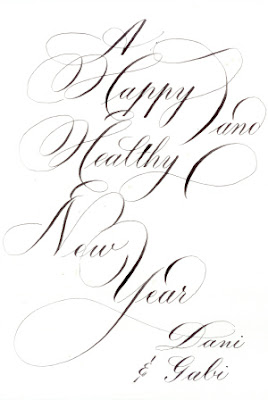 A
Happy and
Healthy
New
Year
Dani
& Gabi